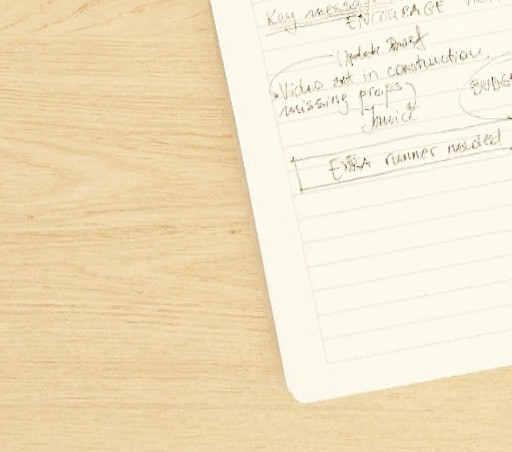 Key message
ENCOURAGE
Update Brief
Video set in construction,
missing props
Invoice
EXTRA runner needed